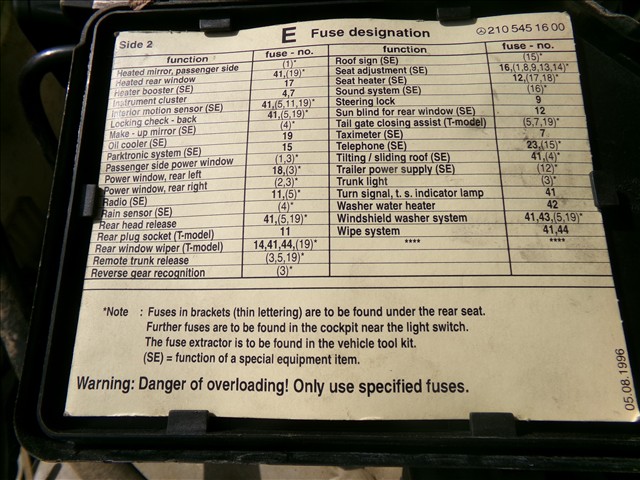 Side 2 E Fuse designation 210 545 16 00
function fuse - no. function fuse - no.
Heated mirror, passenger side (1)* Roof sign (SE) (15)*
Heated rear window 41,(19)* Seat adjustment (SE) 16,(1,8,9,13,14)*
Heater booster (SE) 17 Seat heater (SE) 12,(17,18)*
Instrument cluster 4,7 Sound system (SE) (16)*
Interior motion sensor (SE) 41,(5,11,19)* Steering lock 9
Locking check - back 41,(5,19)* Sun blind for rear window (SE) 12
Make - up mirror (SE) (4)* Tail gate closing assist (T-model) (5,7,19)*
Oil cooler (SE) 19 Taximeter (SE) 7
Parktronic system (SE) 15 Telephone (SE) 23,(15)*
Passenger side power window (1,3)* Tilting / sliding roof (SE) 41,(4)*
Power window, rear left 18,(3)* Trailer power supply (SE) (12)*
Power window, rear right (2,3)* Trunk light (3)*
Radio (SE) 11,(5)* Turn signal, t. s. indicator lamp 41
Rain sensor (SE) (4)* Washer water heater 42
Rear head release 41,(5,19)* Windshield washer system 41,43,(5,19)*
Rear plug socket (T-model) 11 Wipe system 41,44
Rear window wiper (T-model) 14,41,44,(19)* **** ****
Remote trunk release (3,5,19)*
Reverse gear recognition (3)*
*Note : Fuses in brackets (thin lettering) are to be found under the rear seat.
Further fuses are to be found in the cockpit near the light switch.
The fuse extractor is to be found in the vehicle tool kit.
(SE) = function of a special equipment item.
Warning: Danger of overloading! Only use specified fuses.
05.08.1996